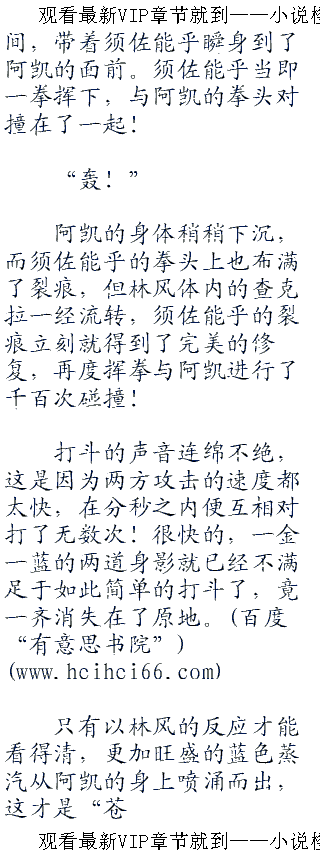 观看最新VIP章节就到——小说
间，带着须佐能乎瞬身到了
阿凯的面前。须佐能乎当即
一拳挥下，与阿凯的拳头对
撞在了一起！
“轰！”
阿凯的身体稍稍下沉，
而须佐能乎的拳头上也布满
了裂痕，但林风体内的查克
拉一经流转，须佐能乎的裂
痕立刻就得到了完美的修
复，再度挥拳与阿凯进行了
千百次碰撞！
打斗的声音连绵不绝，
这是因为两方攻击的速度都
太快，在分秒之内便互相对
打了无数次！很快的，一金
一蓝的两道身影就已经不满
足于如此简单的打斗了，竟
一齐消失在了原地。(百度
“有意思书院”)
(www.hcihci66.com)
只有以林风的反应才能
看得清，更加旺盛的蓝色蒸
汽从阿凯的身上喷涌而出，
这才是“苍
观看最新VIP章节就到——小说